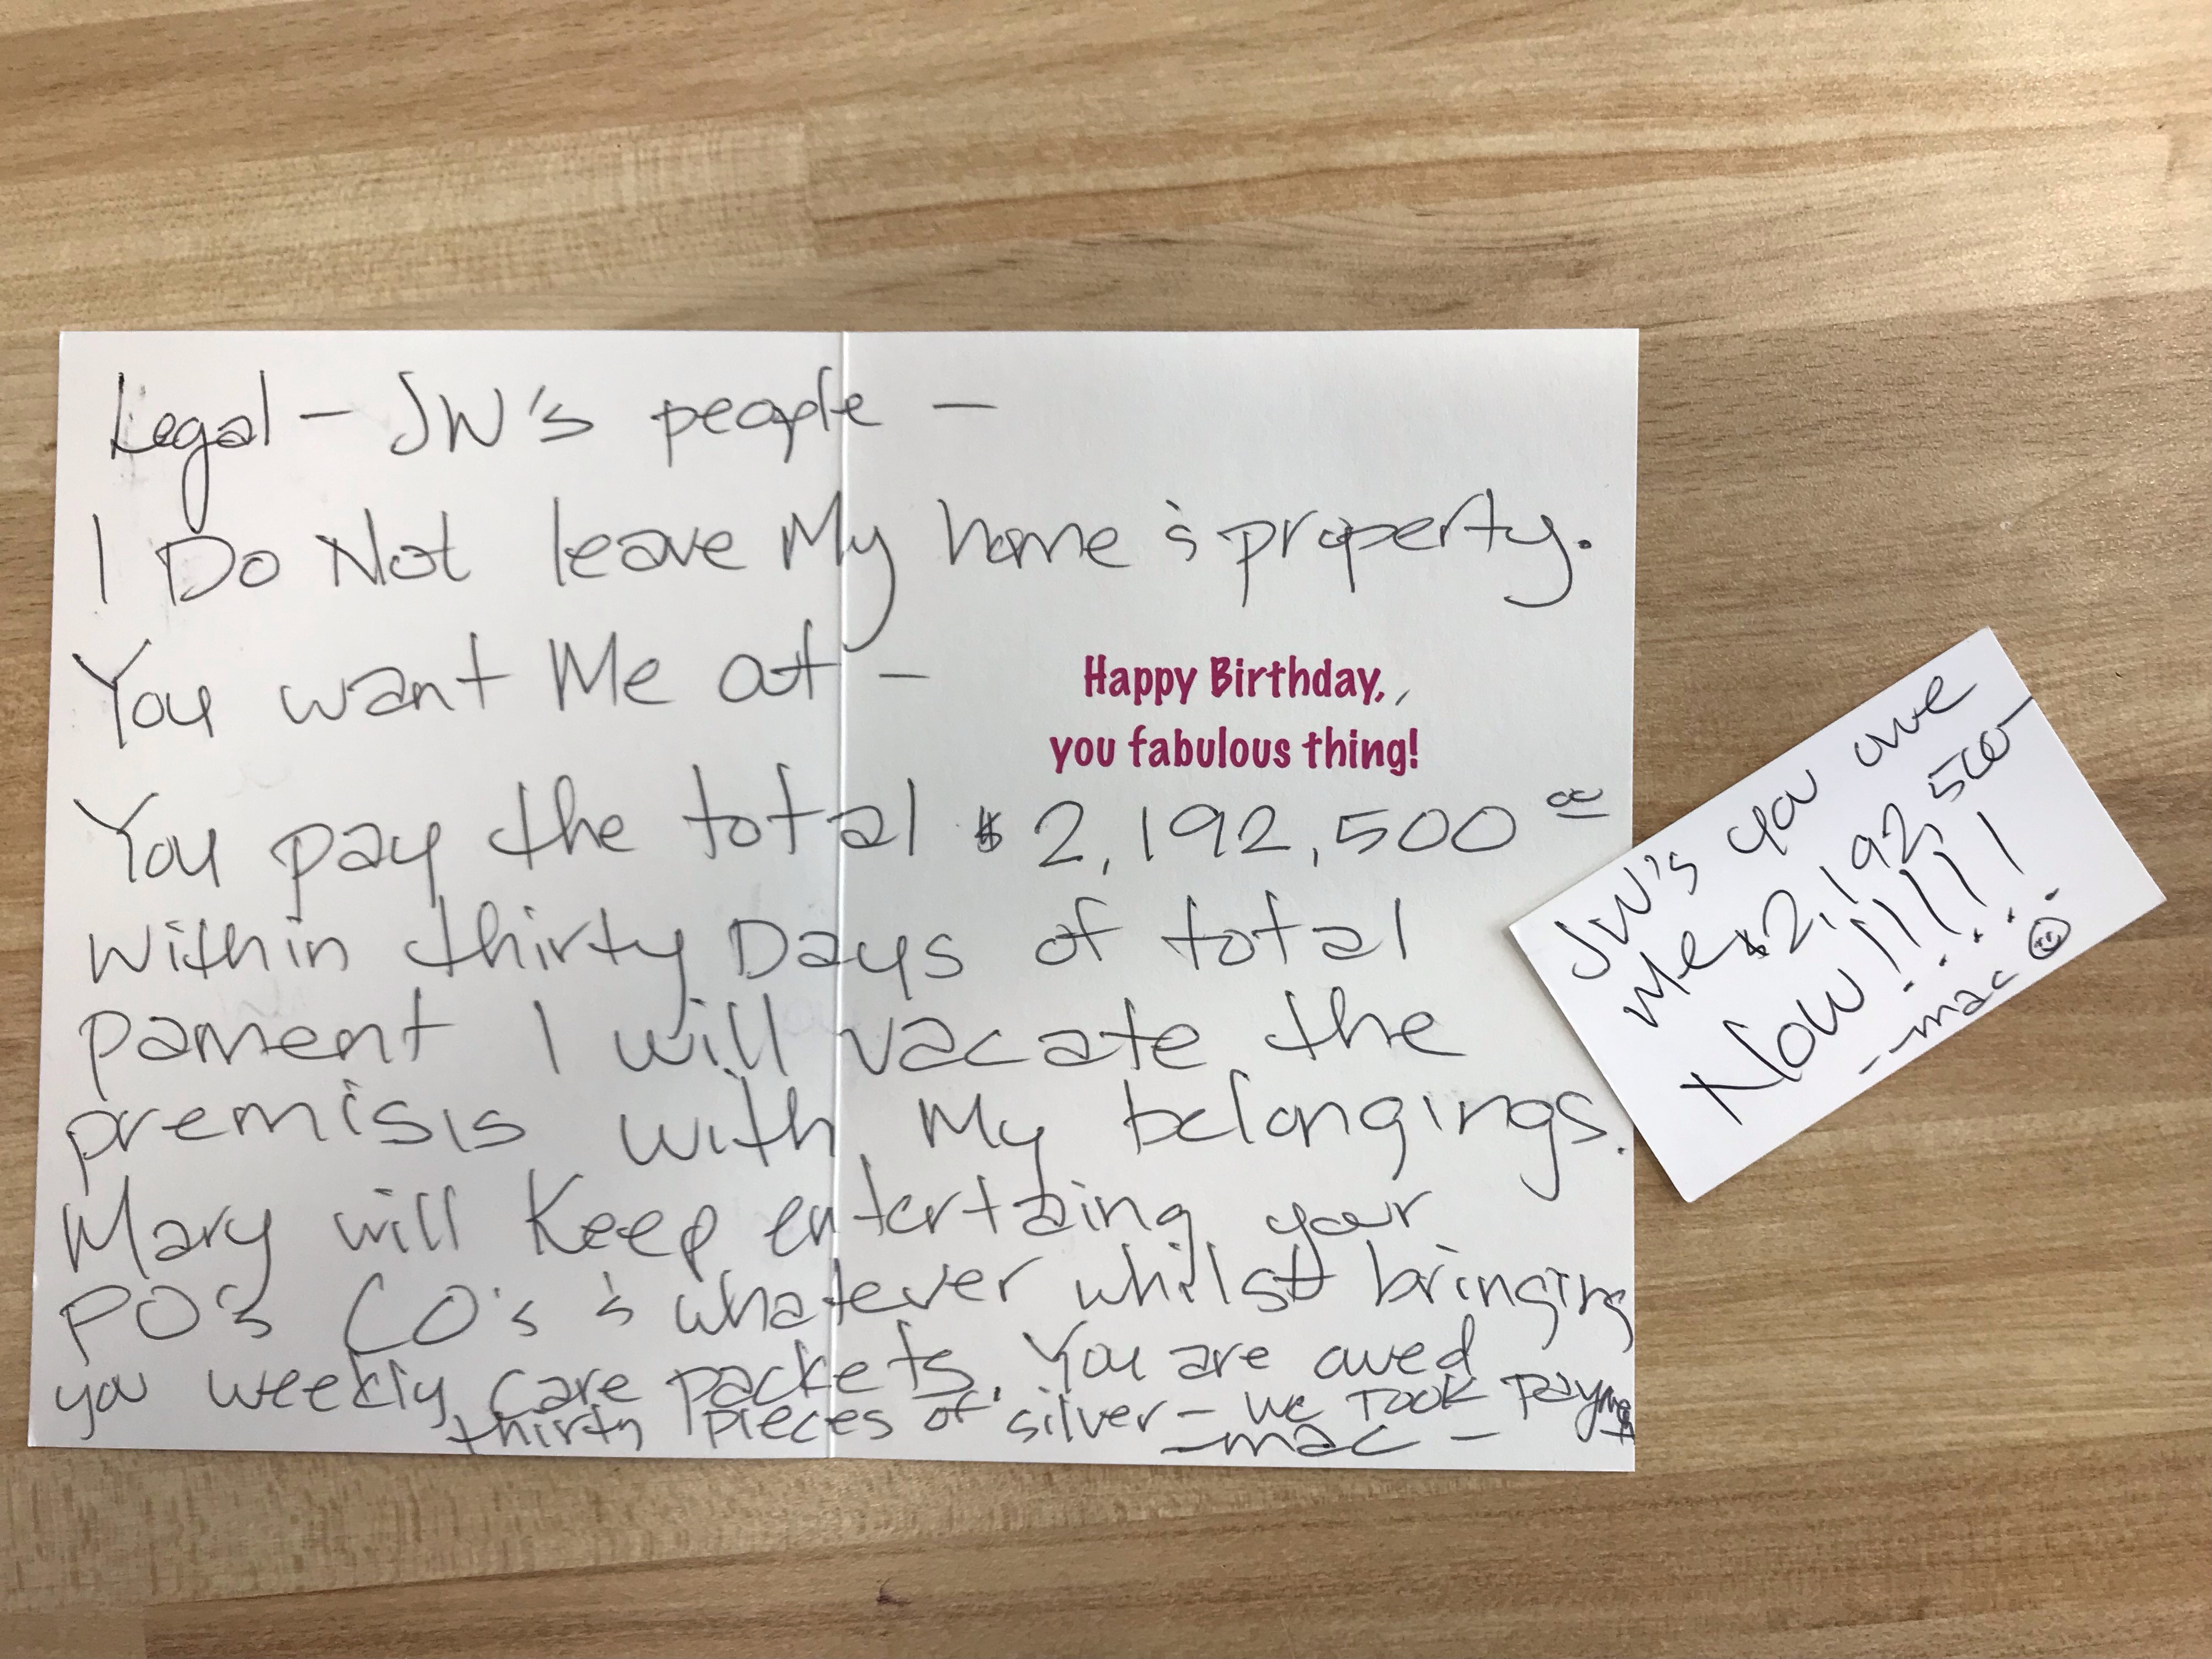 Legal – JW's people –
I Do Not leave My home & property.
You want Me out –
Happy Birthday,
you fabulous thing!
You pay the total $2,192,500 00
within thirty Days of total
pament I will vacate the
premisis with My belongings.
Mary will Keep entertaing your
PO's CO's & whatever whilst bringing
you weekly care packets. You are owed
thirty pieces of silver – we took payment
–mac–
JW's you owe
Me $2,192,500–
Now!!!!!
–mac